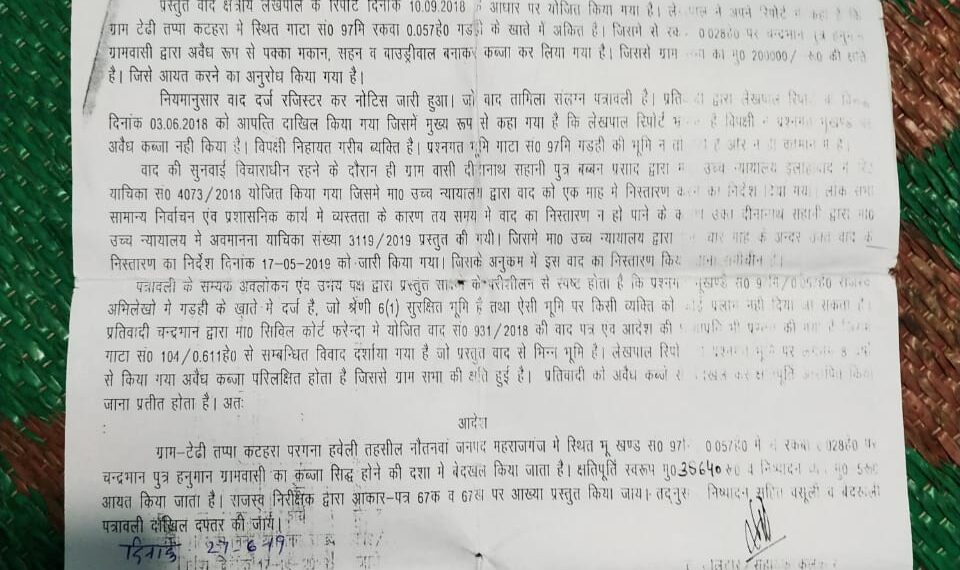 प्रस्तुत वाद क्षेत्रीय लेखपाल के रिपोर्ट दिनांक 10.09.2018 के आधार पर योजित किया गया है। लेखपाल ने अपने रिपोर्ट में कहा है कि
ग्राम टेढी तप्पा कटहरा मे स्थित गाटा सं0 97मि रकवा 0.057हे0 गड़ही के खाते में अंकित है। जिसमे से रकवा 0.028हे0 पर चन्द्रभान पुत्र हनुमान
ग्रामवासी द्वारा अवैध रूप से पक्का मकान, सहन व बाउड्रीवाल बनाकर कब्जा कर लिया गया है। जिससे ग्राम सभा का मु0 200000/ रू0 की क्षति
है। जिसे आयत करने का अनुरोध किया गया है।
नियमानुसार वाद दर्ज रजिस्टर कर नोटिस जारी हुआ। जो वाद तामिला संलग्न पत्रावली है। प्रतिवादी द्वारा लेखपाल रिपोर्ट के
दिनांक 03.06.2018 को आपत्ति दाखिल किया गया जिसमें मुख्य रूप से कहा गया है कि लेखपाल रिपोर्ट है विपक्षी ने प्रश्नगत भूखण्ड पर
अवैध कब्जा नही किया है। विपक्षी निहायत गरीब व्यक्ति है। प्रश्नगत भूमि गाटा सं0 97मि गडही की भूमि न तो है और न ही
वाद की सुनवाई विचाराधीन रहने के दौरान ही ग्राम वासी दीनानाथ सहानी पुत्र बब्बन प्रसाद द्वारा मा0 उच्च न्यायालय इलाहाबाद मे रिट
याचिका सं0 4073/2018 योजित किया गया जिसमे मा0 उच्च न्यायालय द्वारा वाद को एक माह मे निस्तारण करने का निर्देश दिया गया। लोक सभा
सामान्य निर्वाचन एंव प्रशासनिक कार्य मे व्यस्तता के कारण तय समय मे वाद का निस्तारण न हो पाने के कारण उक्त दीनानाथ सहानी द्वारा मा0
उच्च न्यायालय मे अवमानना याचिका संख्या 3119/2019 प्रस्तुत की गयी। जिसमे मा0 उच्च न्यायालय द्वारा चार माह के अन्दर उक्त वाद के
निस्तारण का निर्देश दिनांक 17-05-2019 को जारी किया गया। जिसके अनुक्रम में इस वाद का निस्तारण किया जाना समीचीन है।
पत्रावली के सम्यक अवलोकन एंव उभय पक्ष द्वारा प्रस्तुत साक्ष्य के परिशीलन से स्पष्ट होता है कि प्रश्नगत भूखण्ड सं0 97मि/0.057हे0 राजस्व
अभिलेखो मे गड़ही के खाते में दर्ज है, जो श्रेणी 6(1) सुरक्षित भूमि है तथा ऐसी भूमि पर किसी व्यक्ति को कोई नही दिया जा सकता है।
प्रतिवादी चन्द्रभान द्वारा मा0 सिविल कोर्ट फरेन्दा मे योजित वाद सं0 931/2018 की वाद पत्र एंव आदेश की भी प्रस्तुत की गया है
गाटा सं0 104/0.611हे0 से सम्बन्धित विवाद दर्शाया गया है जो प्रस्तुत वाद से भिन्न भूमि है। लेखपाल रिपोर्ट प्रश्नगत भूमि पर लगभग 8 वर्षो
से किया गया अवैध कब्जा परिलक्षित होता है जिससे ग्राम सभा की क्षति हुई है। प्रतिवादी को अवैध कब्जे से बेदखल कर क्षतिपूर्ति किया
जाना प्रतीत होता है। अतः
आदेश
ग्राम-टेढी तप्पा कटहरा परगना हवेली तहसील नौतनवां जनपद महराजगंज मे स्थित भू खण्ड स0 97मि 0.057हे0 मे से रकबा 0.028हे0 पर
चन्द्रभान पुत्र हनुमान ग्रामवासी का कब्जा सिद्ध होने की दशा मे बेदखल किया जाता है। क्षतिपूर्ति स्वरूप मु0 35640 रू0 व निष्पादन मु0
आयत किया जाता है। राजस्व निरीक्षक द्वारा आकार-पत्र 67क व 67ख पर आख्या प्रस्तुत किया जाय। तद्नुसार निष्पादन सहित वसूली व बेदखली
पत्रावली दाखिल दफ्तर की जाये।
दिनांक 27-6-19